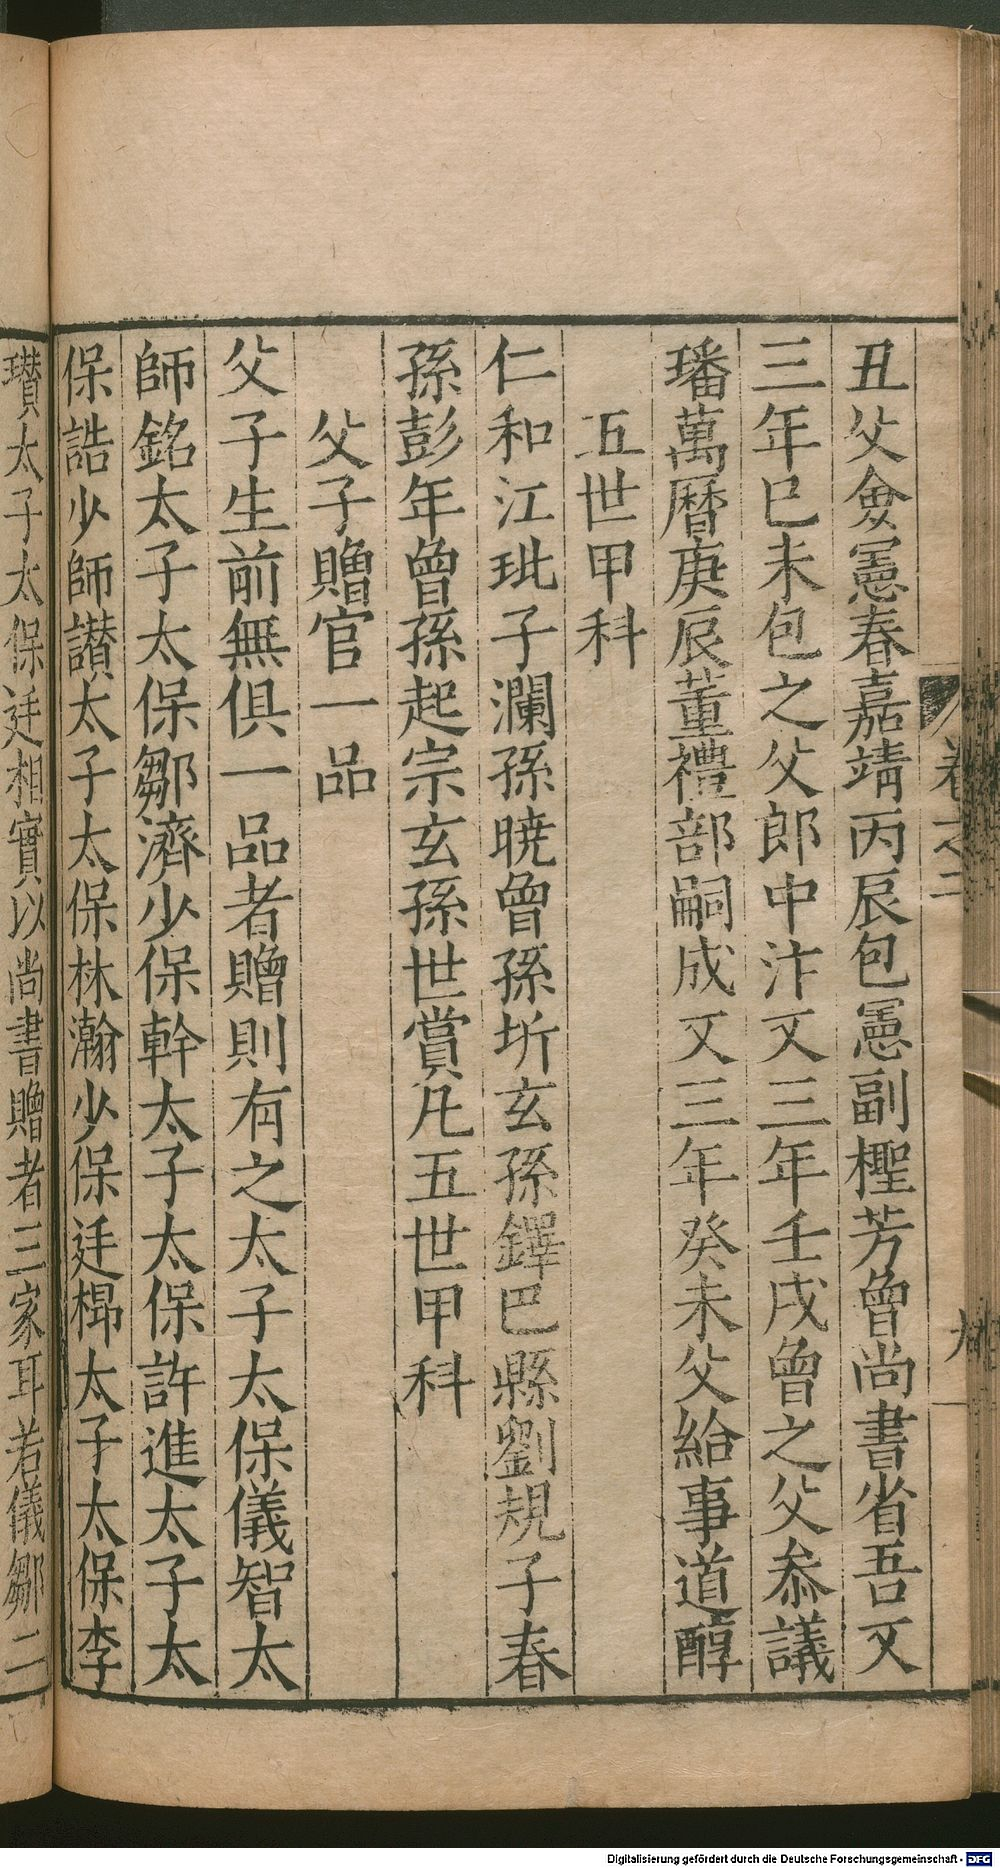 丑父僉憲春嘉靖丙辰包憲副檉芳曾尚書省吾又
三年巳未包之父郎中汴又三年壬戌曾之父叅議
璠萬曆庚辰董禮部嗣成又三年癸未父給事道醇
五世甲科
仁和江玭子瀾孫曉曾孫圻玄孫鐸巴縣劉規子春
孫彭年曾孫起宗玄孫世賞凡五世甲科
父子贈官一品
父子生前無俱一品者贈則有之太子太保儀智太
師銘太子太保鄒濟少保幹太子太保許進太子太
保誥少師讚太子太保林瀚少保廷㭿太子太保李
瓚太子太保廷相實以尚書贈者三家耳若儀鄒二
卷之二
九
Digitalisierung gefördert durch die Deutsche Forschungsgemeinschaft - DFG